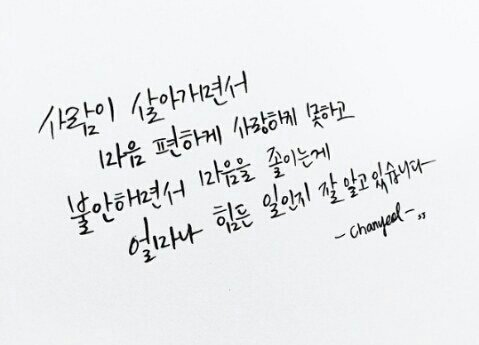 사람이 살아가면서
마음 편하게 사랑하지 못하고
불안해면서 마음을 졸이는게
얼마나 힘든 일인지 잘 알고 있습니다
- chanyeol - ,,